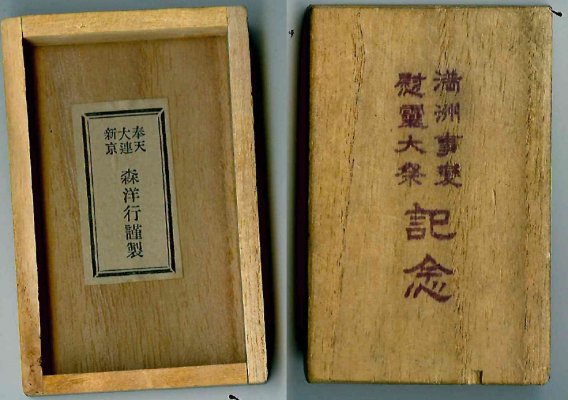 奉天
大連
新京
森洋行謹製
満洲事変
慰霊大祭
記念